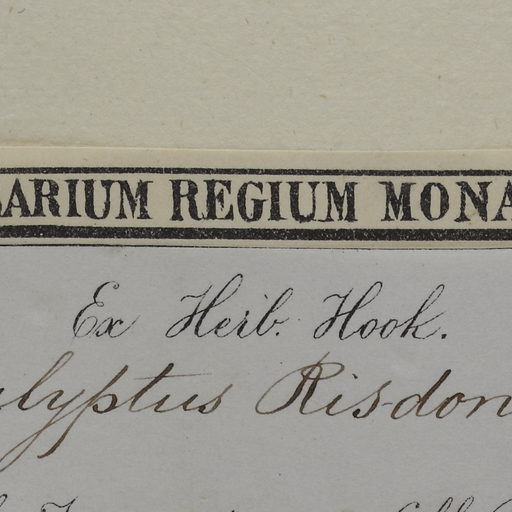 BARIUM REGIUM MONA
Ex Herb. Hook.
alyptus Risdon